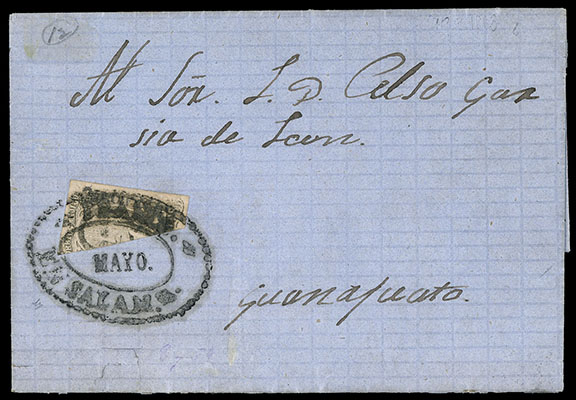 12
Al Sōr. L. D. Celso Gar
sia de Leon.
FRANCO
MAYO.
EN SALAMA.
Guanajuato.